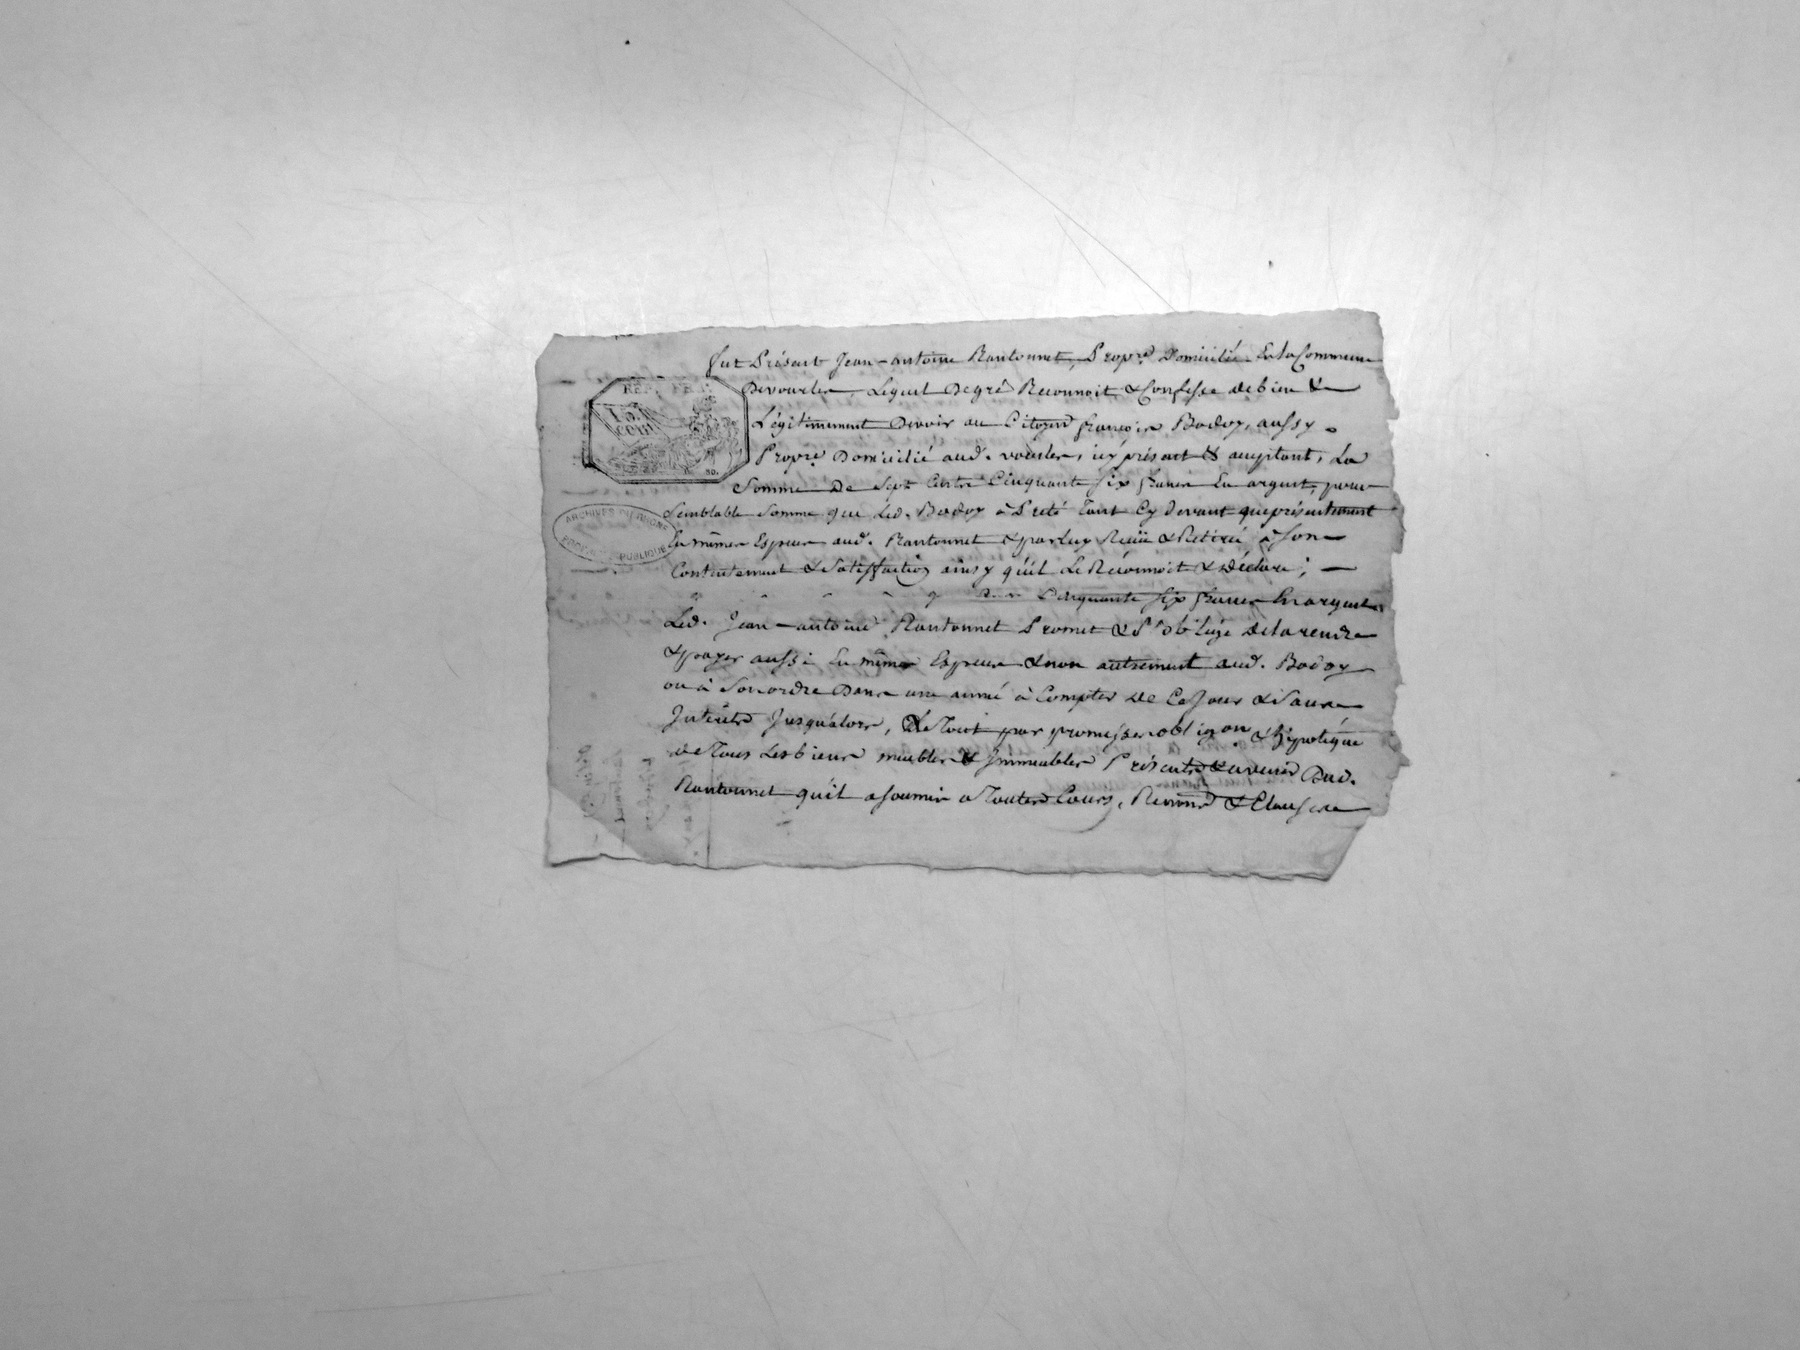 fut Présent Jean-antoine Rantonnet, Propre. Domicilié En la Commune
RÉP. FRA.
Devourles, Lequel Degré Reconnoit & Confesse debien &
75 cent
Légitimement Devoir au Citoyen françois Badoy, aussy
Propre. Domicilié aud. vourles, icy présent & acceptant, La
Somme De Sept Cents Cinquante six francs En argent, pour
Semblable Somme que Led. Badoy à Preté Tant Cy devant que présentement
ARCHIVES DU RHONE
PUBLIQUE
En mêmes Especes aud. Rantonnet & par luy Reçü & Retiré à Son
Contentement & Satisfaction ainsy qu'il Le Réconnoit & Déclare;
Cinquante six francs En argent
Led. Jean-antoine Rantonnet Promet & S'obligé de la rendre
& payer aussi En mêmes Especes & non autrement aud. Badoy
ou à Son ordre Dans une année à Compter de Ce Jour & Sans
Intérêts Jusqu'alors, Le Tout par promesses obligon & hÿpotéque
de Tous Les biens meubles & Immeubles Présents & avenir Dud.
Rantonnet qu'il a soumis a Toutes Cours, Renonc & Clauses